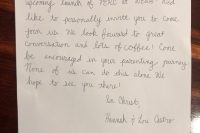 upcoming launch of at We'd
like to personally invite you to come
join us. We look forward to great
conversation and lots of coffee! Come
be encouraged in your parenting journey.
None of us can do this alone. We
hope to see you there!
In Christ,
Hannah & Lou Castro